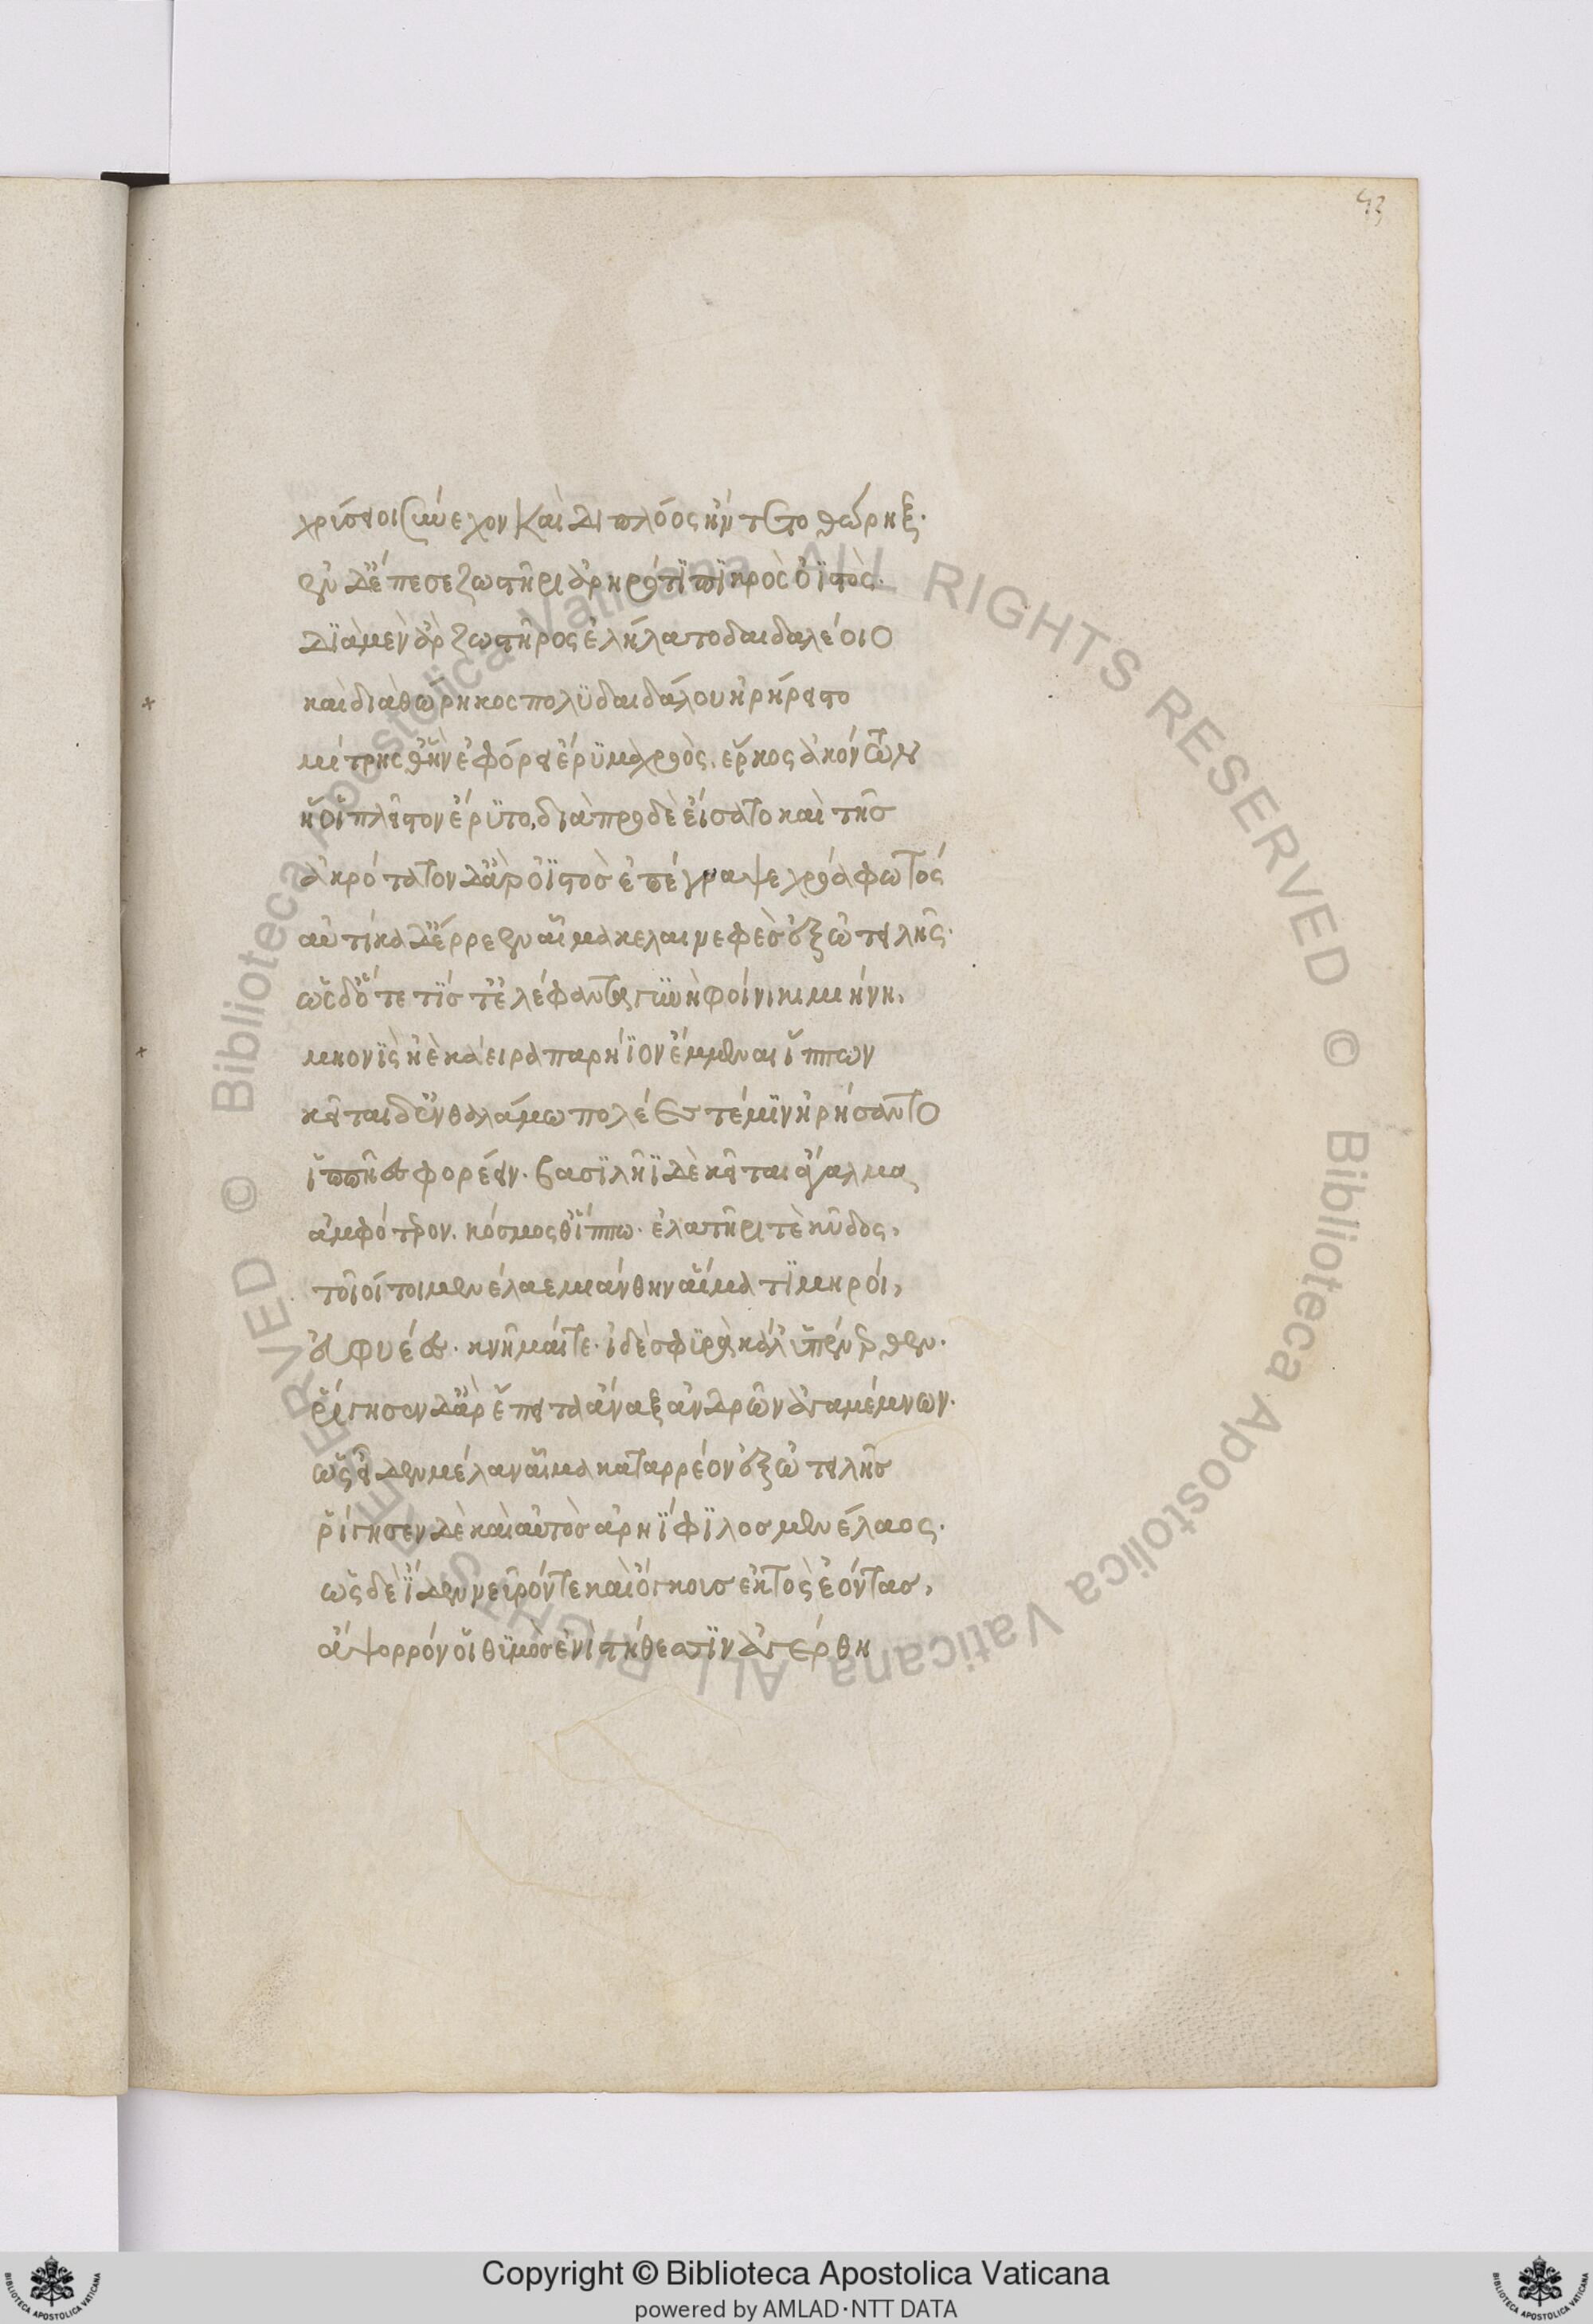 43
χρύσειοι σύνεχον καὶ διπλόος ἤντετο θώρηξ·
ἐν δ' ἔπεσε ζωστῆρι ἀρηρότι πικρὸς ὀϊστὸς·
διὰ μὲν ἂρ ζωστῆρος ἐλήλατο δαιδαλέοιο
καὶ διὰ θώρηκος πολυδαιδάλου ἠρήρειστο
μίτρης θ' ἣν ἐφόρει ἔρυμα χροὸς, ἕρκος ἀκόντων
ἥ οἱ πλεῖστον ἔρυτο, διὰ πρὸ δὲ εἴσατο καὶ τῆς
ἀκρότατον δ' ἂρ ὀϊστὸς ἐπέγραψε χρόα φωτός
αὐτίκα δ' ἔρρεεν αἷμα κελαινεφὲς ἐξ ὠτειλῆς·
ὡς δ' ὅτε τίς τ' ἐλέφαντα γυνὴ φοίνικι μιήνη,
μηονὶς ἠὲ κάειρα παρήϊον ἔμμεναι ἵππων
κεῖται δ' ἐν θαλάμω πολέες τέ μιν ἠρήσαντο
ἱππῆες φορέειν· βασιλῆϊ δὲ κεῖται ἄγαλμα
ἀμφότερον, κόσμος θ' ἵππω· ἐλατῆρι τὲ κῦδος,
τοῖοί τοι μενέλαε μιάνθην αἵματι μηροί,
εὐφυέες· κνῆμαί τε· ἰδὲ σφυρὰ κάλ' ὑπένερθεν·
ῥίγησεν δ' ἂρ ἔπειτα ἄναξ ἀνδρῶν ἀγαμέμνων·
ὡς εἶδεν μέλαν αἷμα καταρρέον ἐξ ὠτειλῆς
ῥίγησεν δὲ καὶ αὐτὸς ἀρηΐφιλος μενέλαος·
ὡς δὲ ἴδεν νεῦρόν τε καὶ ὄγκους ἐκτὸς ἐόντας,
ἄψορρόν οἱ θυμὸς ἐνὶ στήθεσσιν ἀγέρθη
Copyright © Biblioteca Apostolica Vaticana
powered by AMLAD·NTT DATA
© Biblioteca Apostolica Vaticana ALL RIGHTS RESERVED © Biblioteca Apostolica Vaticana ALL RIGHTS RESERVED
BIBLIOTECA APOSTOLICA VATICANA
BIBLIOTECA APOSTOLICA VATICANA